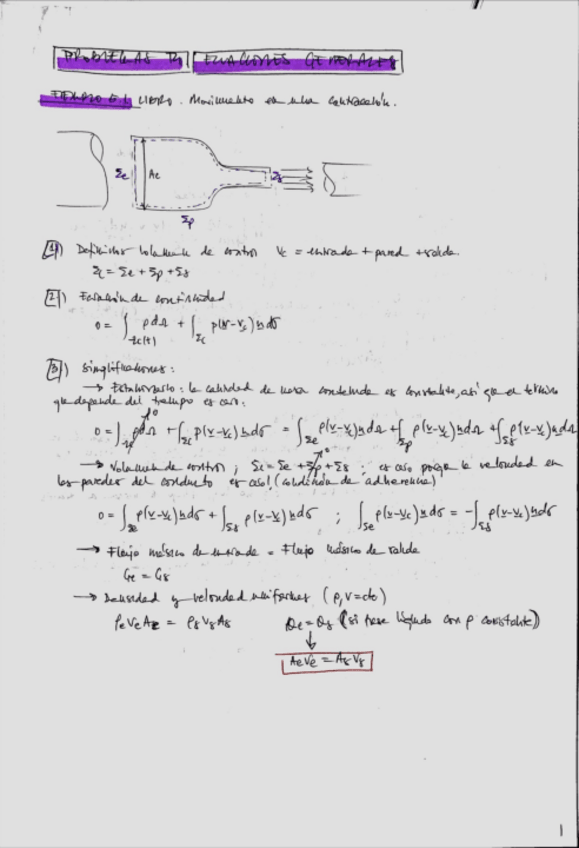 PROBLEMAS T2 ECUACIONES GENERALES
EJEMPLO 5.1 LIBRO. Movimiento en una contracción.
Σe Ae Σs
Σp
1) Definimos volumen de control Vc = entrada + pared + salida.
Σc = Σe + Σp + Σs
2) Ecuación de continuidad
0 = ∫Ωc(t) ρdΩ + ∫Σc ρ(v-vc)n dσ
3) Simplificaciones:
→ Estacionario: la cantidad de masa contenida es constante, así que el término
que depende del tiempo es cero.
0 = ∫Ωc ρdΩ + ∫Σc ρ(v-vc)n dσ = ∫Σe ρ(v-vc)n dσ + ∫Σp ρ(v-vc)n dσ + ∫Σs ρ(v-vc)n dσ
→ Volumen de control; Σc = Σe + Σp + Σs; es cero porque la velocidad en
las paredes del conducto es cero! (condición de adherencia)
0 = ∫Σe ρ(v-vc)n dσ + ∫Σs ρ(v-vc)n dσ ; ∫Σe ρ(v-vc)n dσ = -∫Σs ρ(v-vc)n dσ
→ Flujo másico de entrada = Flujo másico de salida
Ge = Gs
→ Densidad y velocidad uniformes (ρ,v=cte)
ρe Ve Ae = ρs Vs As Qe = Qs (si fuese líquido con ρ constante)
↓
AeVe = AsVs
1